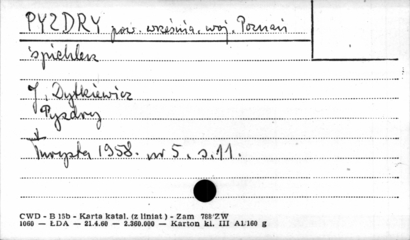 PYZDRY pow. września, woj. Poznań
spichlerz
J. Dytkiewicz
Pyzdry
Turysta 1958. nr 5. s. 11.
CWD - B 15b - Karta katal. (z liniat) - Zam 788/ZW
1060 — ŁDA — 21.4.60 — 2.360.000 — Karton kl. III A1/160 g